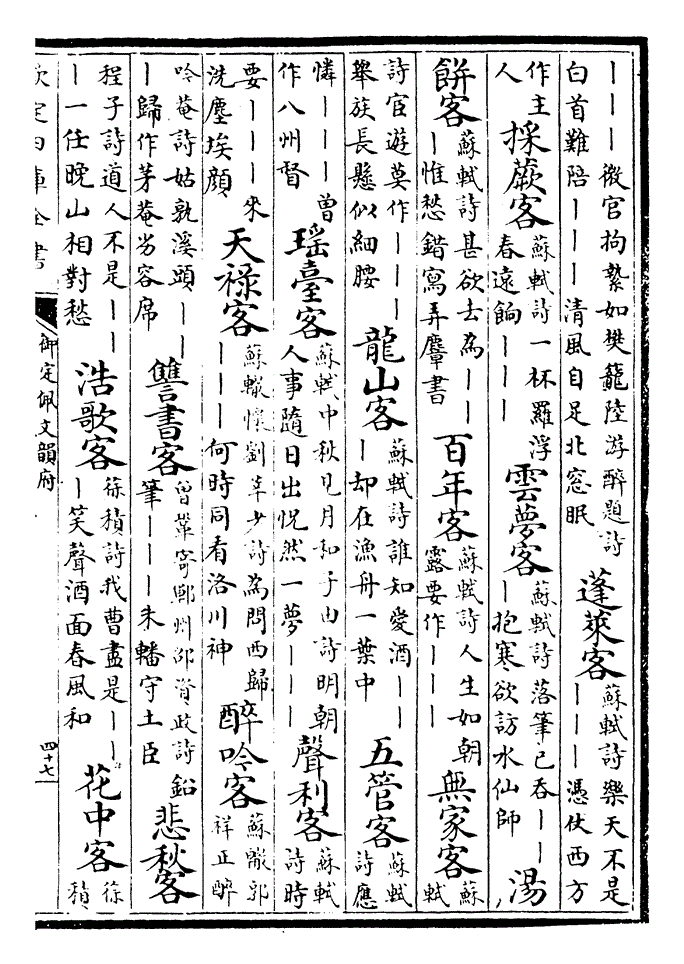 ｜｜｜微官拘縶如樊籠陸游醉題詩白首難陪｜｜｜清風自足北窓眠　蓬萊客　蘇軾詩樂天不是｜｜｜憑仗西方
作主人　採蕨客　蘇軾詩一杯羅浮春遠餉｜｜｜　雲夢客　蘇軾詩落筆已吞｜｜｜抱寒欲訪水仙師　湯
餅客　蘇軾詩甚欲去為｜｜｜惟愁錯寫弄麞書　百年客　蘇軾詩人生如朝露要作｜｜｜　無家客　蘇軾
詩宦遊莫作｜｜｜舉族長懸似細腰　龍山客　蘇軾詩誰知愛酒｜｜｜却在漁舟一葉中　五管客　蘇軾詩應
憐｜｜｜曾作八州督　瑶臺客　蘇軾中秋見月和子由詩明朝人事隨日出怳然一夢｜｜｜　聲利客　蘇軾詩時
要｜｜｜來洗塵埃顔　天禄客　蘇轍懷劉莘少詩為問西歸｜｜｜何時同看洛川神　醉吟客　蘇轍郭祥正醉
吟菴詩姑孰溪頭｜｜｜歸作茅菴劣容席　讐書客　曾鞏寄鄆州邵資政詩鉛筆｜｜｜朱轓守土臣　悲秋客
程子詩道人不是｜｜｜一任晚山相對愁　浩歌客　徐積詩我曹盡是｜｜｜笑聲酒面春風和　花中客　徐積
欽定四庫全書
御定佩文韻府
四十七